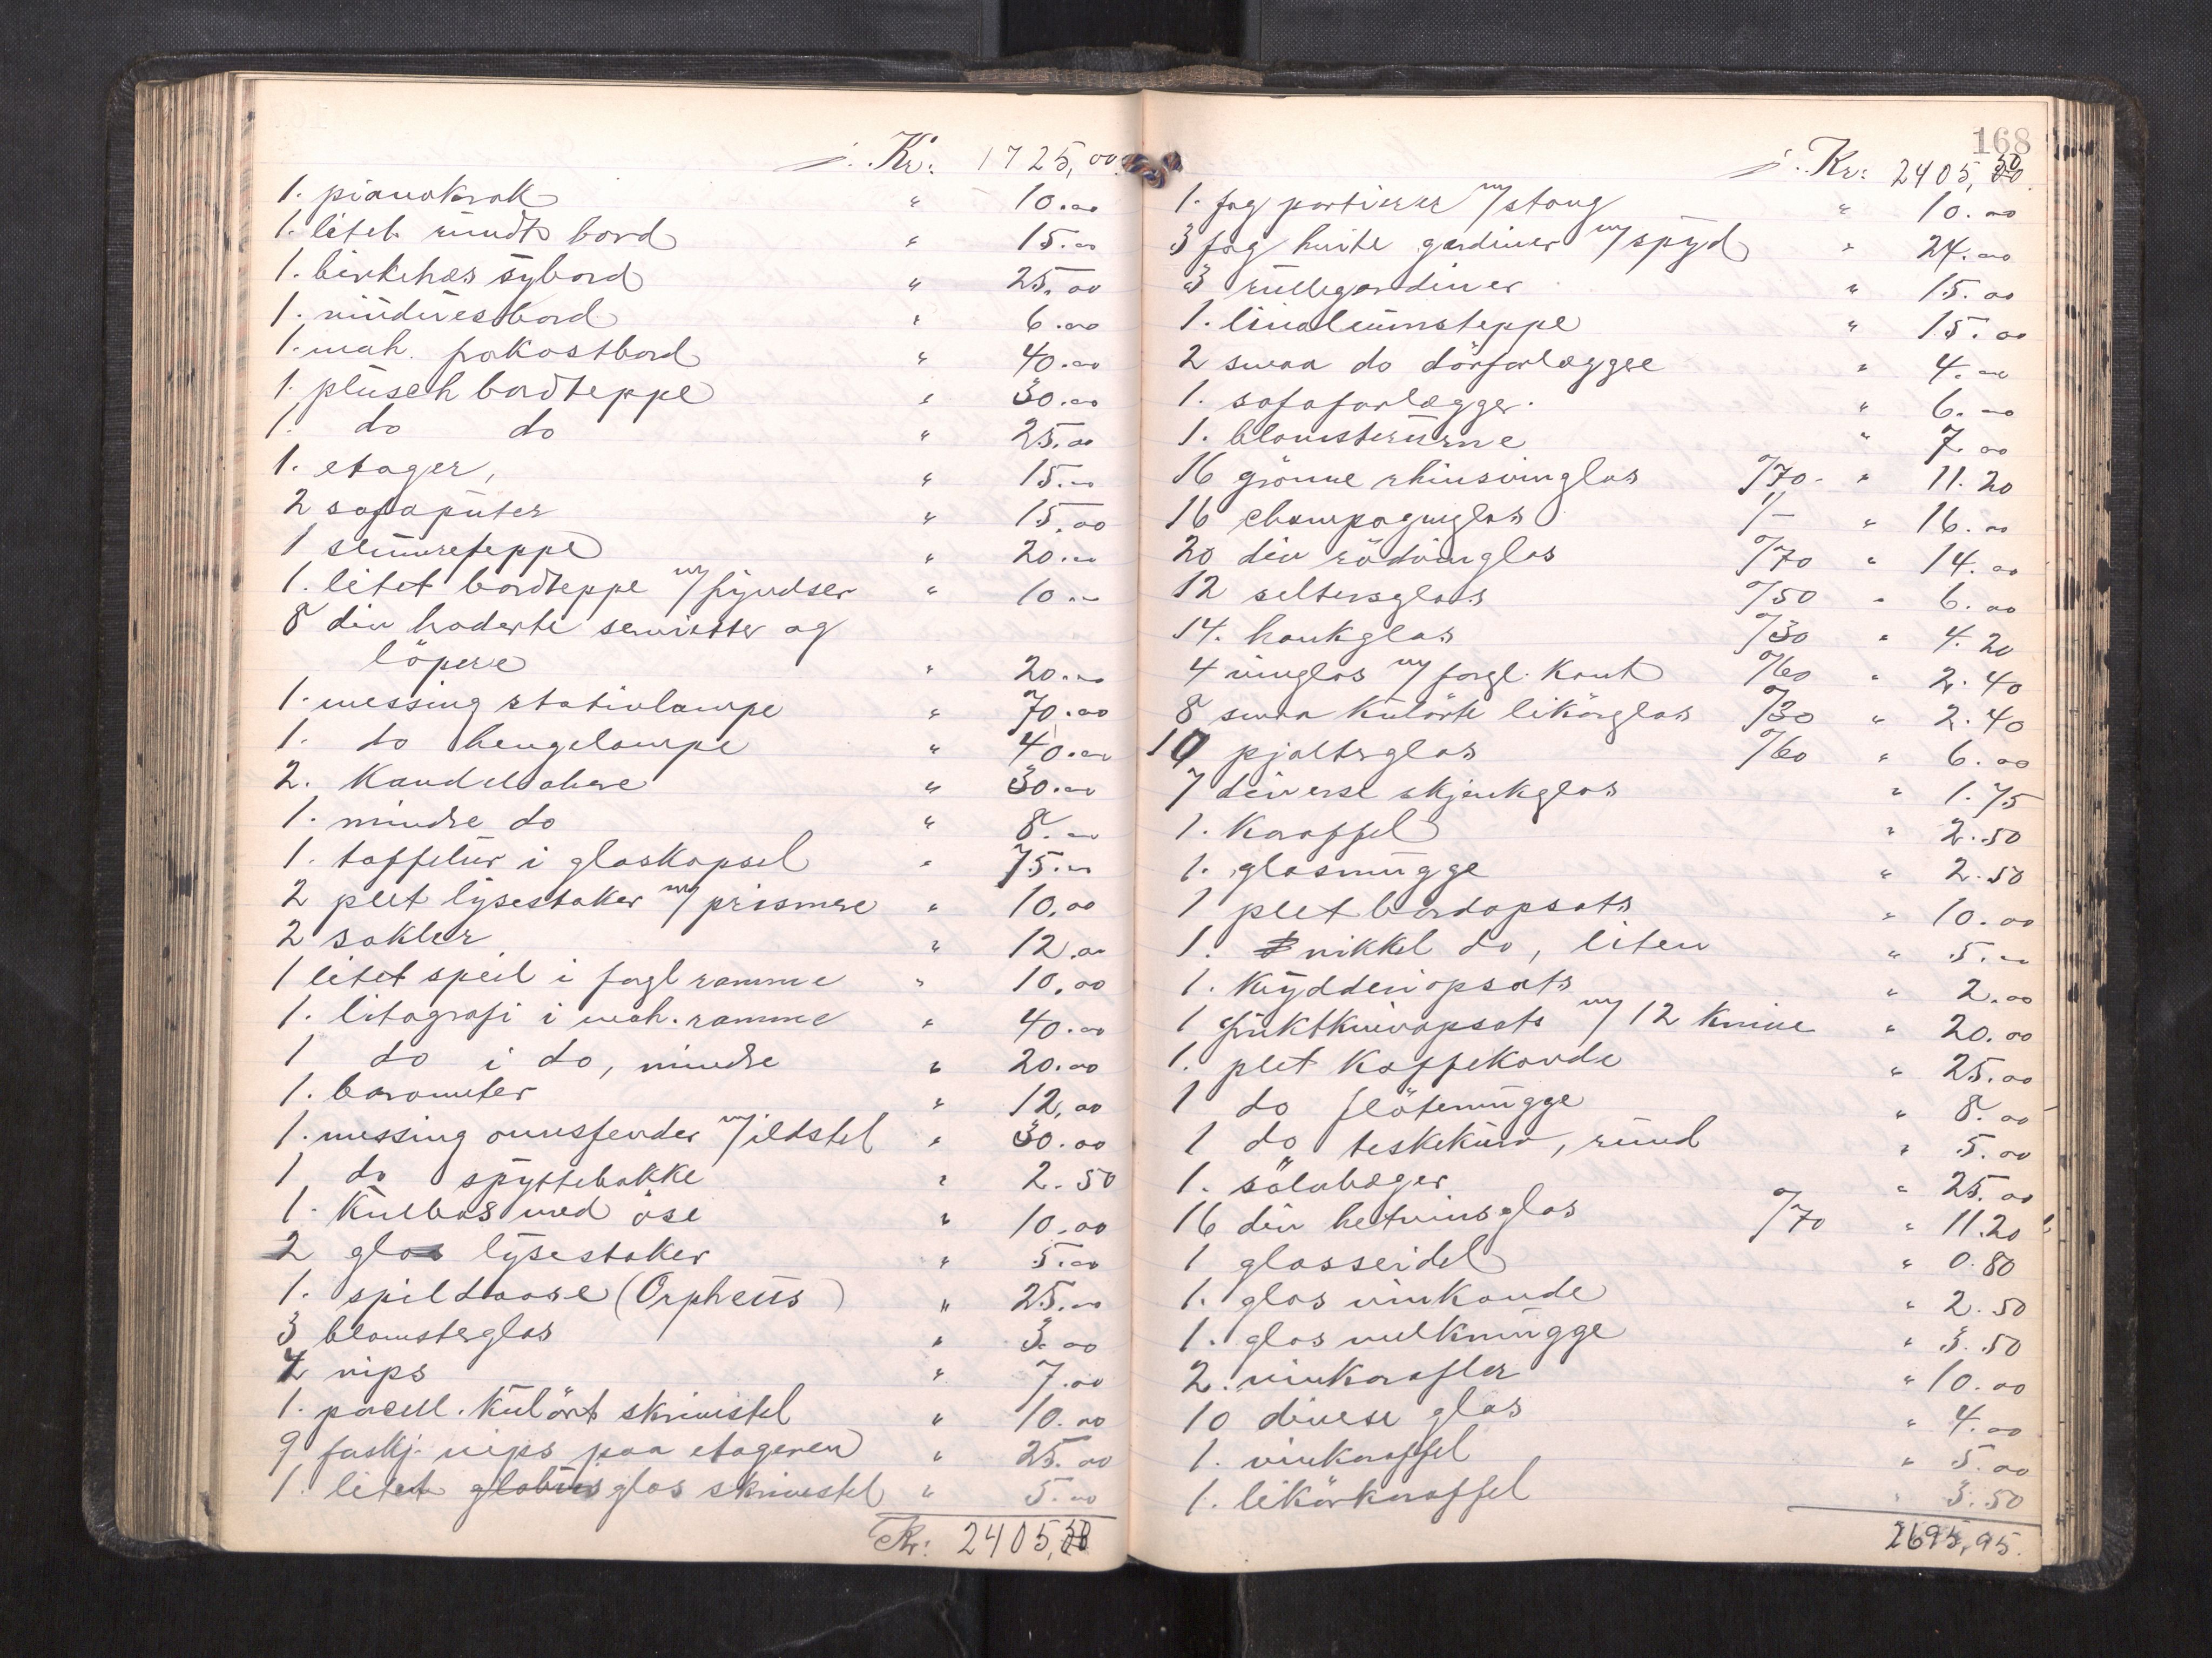 j. Kr: 1725,00.
1. pianokrak " 10.00
1. litet rundt bord " 15.00
1. birketræs sybord " 25.00
1. 6.00
1. mah. frokostbord " 40.00
1. plüsch bordteppe " 30.00
1. do do " 25.00
1. etager, " 15.00
2 sofaputer " 15.00
1 " 20.00
1. litet bordteppe m/ fryndser " 10.00
8 div broderte servietter og
löpere " 20.00
1. messing stativlampe " 70.00
1. do hengelampe " 40.00
2. Kandelabere " 30.00
1. mindre do " 8.00
1. taffelur i glaskapsel " 75.00
2 plet lysestaker m/ prismer " 10.00
2 sokler " 12.00
1 litet speil i forgl ramme " 10.00
1. litografi i mah. ramme " 40.00
1 do i do, mindre " 20.00
1. barometer " 12.00
1. messing ovnsfender m/ ildstel " 30.00
1 do spyttebakke " 2.50
1. Kulbox med öse " 10.00
2 glas lysestaker " 5.00
1. spildaase (Orpheus) " 25.00
3 blomsterglas " 3.00
4 nips " 7.00
1. porcell. kulört skrivestel " 10.00
9 forskj. nips paa etageren " 25.00
1. litet globus glas skrivestel " 5.00
Kr: 2405,50
168
j. Kr: 2405,50.
1. fag portierer m/ stang " 10.00
3 fag hvite gardiner m/ spyd " 24.00
3 rullegardiner " 15.00
1. linoleumsteppe " 15.00
2 smaa do dörforlæggere " 4.00
1. sofaforlægger. " 6.00
1. blomsterurne " 7.00
16 grönne rhinsvinglas º/70. " 11.20
16 champagneglas 1/- " 16.00
20 div rödvinglas º/70 " 14.00
12 seltersglas º/50 " 6.00
14. hankglas º/30 " 4.20
4 vinglas m/ forgl. Kant º/60 " 2.40
8 smaa kulörte likörglas º/30 " 2.40
10 pjolterglas º/60 " 6.00
7 diverse skjenkglas " 1.75
1. Karaffel " 2.50
1. glasmugge " 2.50
1 plet bordopsats " 10.00
1. nikkel do, liten " 5.00
1. Krydderiopsats " 2.00
1 fruktknivopsats m/ 12 knive " 20.00
1. plet Kaffekande " 25.00
1 do flötemugge " 8.00
1 do teskekurv, rund " 5.00
1. sölvbæger " 25.00
16 div hetvinsglas º/70 " 11.20
1 glasseidel " 0.80
1. glas vinkande " 2.50
1. glas melkmugge " 3.50
2. vinkarafler " 10.00
10 diverse glas " 4.00
1. vinkaraffel " 5.00
1. likörkaraffel " 3.50
2695,95.